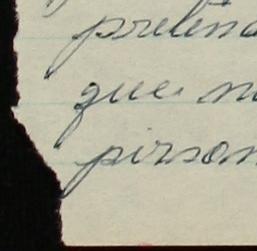 pretend
que n
person